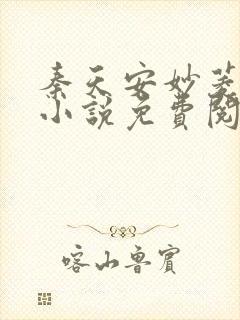 秦天安妙菱
小說免費閱
喀山魯賓